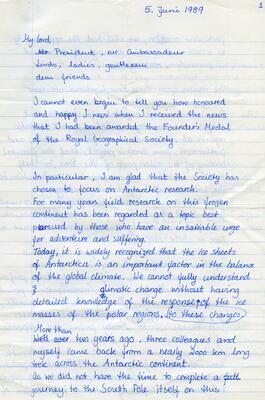 5. Juni 1989
1
My lord,
Mr President, mr. Ambassadeur
Lords, ladies, gentlemen
dear friends.
I cannot even begin to tell you how honoured
and happy I was when I received the news
that I had been awarded the Founder's Medal
of the Royal Geographical Society.
In particular, I am glad that the Society has
chosen to focus on Antarctic research.
For many years field research on this frozen
continent has been regarded as a topic best
pursued by those who have an insatiable urge
for adventure and suffering.
Today, it is widely recognized that the ice sheets
of Antarctica is an important factor in the balance
of the global climate. We cannot fully understand
climatic change without having
detailed knowledge of the response of the ice
masses of the polar regions. (to these changes)
More than
Well over two years ago, three colleagues and
myself came back from a nearly 2000 km long
trek across the Antarctic continent.
As we did not have the time to complete a full
journey to the South Pole itself on this